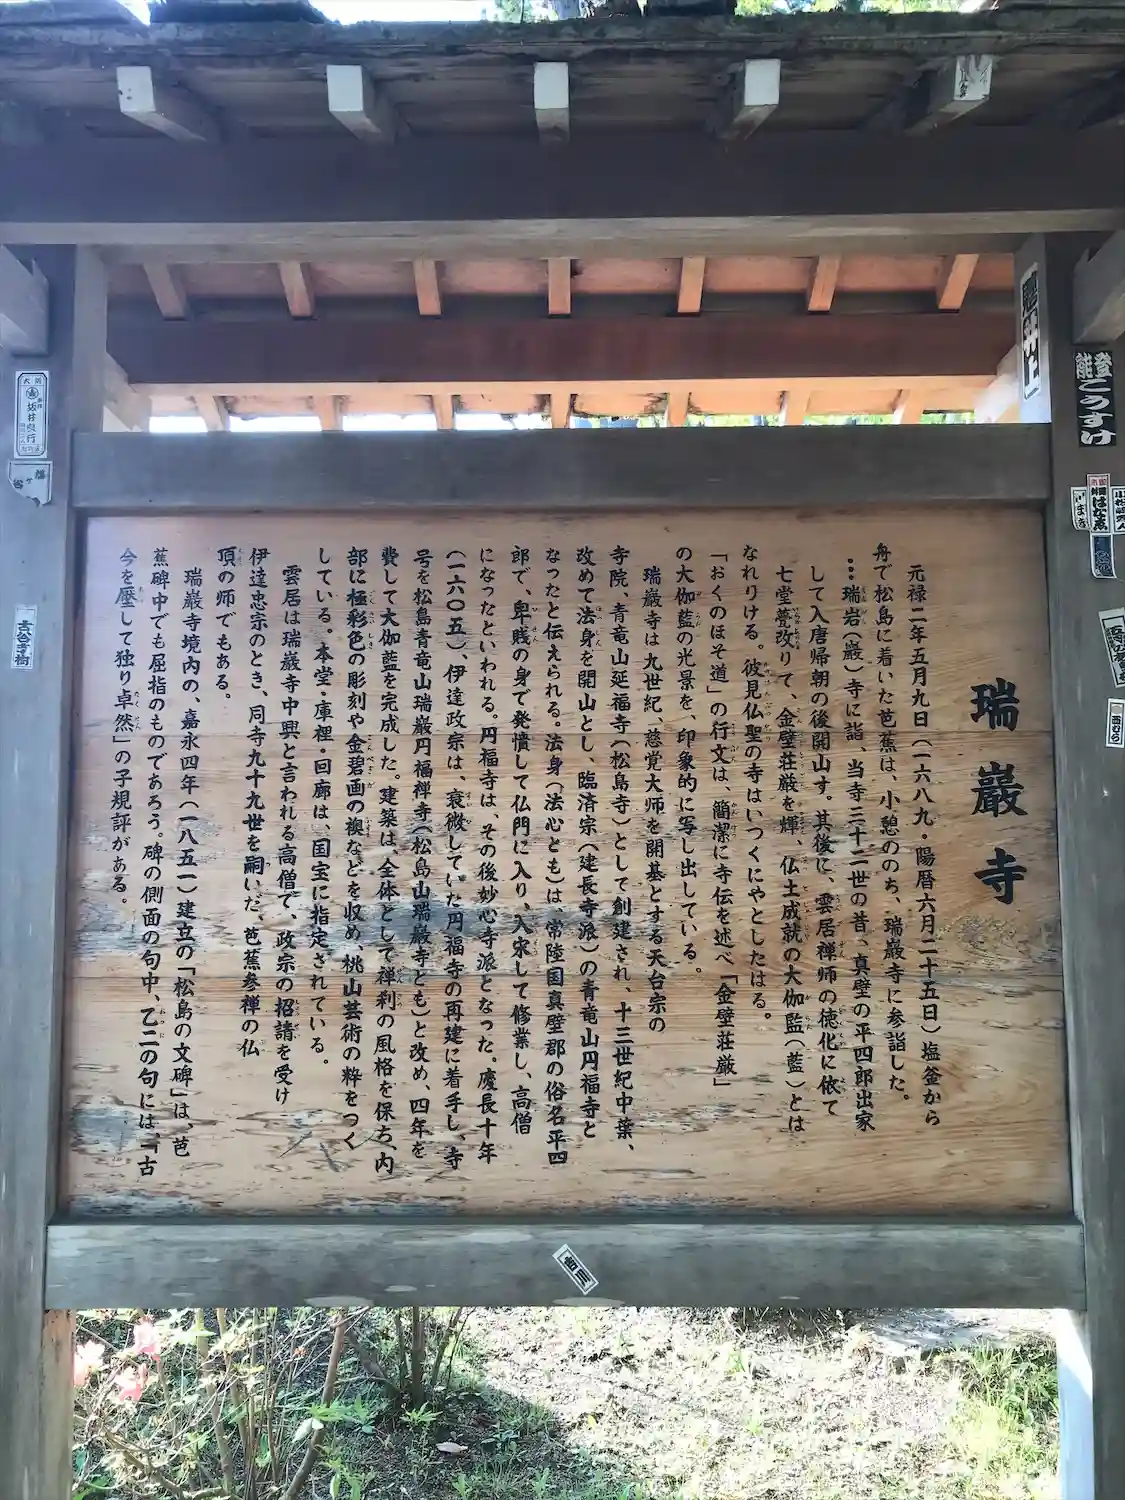 瑞巖寺
元禄二年五月九日(一六八九・陽暦六月二十五日)塩釜から
舟で松島に着いた芭蕉は、小憩ののち、瑞巖寺に参詣した。
…瑞岩(巖)寺に詣、当寺三十二世の昔、真壁の平四郎出家
して入唐帰朝の後開山す。其後に、雲居禅師の徳化に依て
七堂甍改りて、金壁荘厳を輝、仏土成就の大伽監(藍)とは
なれりける。彼見仏聖の寺はいつくにやとしたはる。
「おくのほそ道」の行文は、簡潔に寺伝を述べ「金壁荘厳」
の大伽藍の光景を、印象的に写し出している。
瑞巖寺は九世紀、慈覚大師を開基とする天台宗の
寺院、青竜山延福寺(松島寺)として創建され、十三世紀中葉、
改めて法身を開山とし、臨済宗(建長寺派)の青竜山円福寺と
なったと伝えられる。法身(法心とも)は、常陸国真壁郡の俗名平四
郎で、卑賎の身で発憤して仏門に入り、入宋して修業し、高僧
になったといわれる。円福寺は、その後妙心寺派となった。慶長十年
(一六〇五)、伊達政宗は、衰微していた円福寺の再建に着手し、寺
号を松島青竜山瑞巖円福禅寺(松島山瑞巖寺とも)と改め、四年を
費して大伽藍を完成した。建築は、全体として禅刹の風格を保ち、内
部に極彩色の彫刻や金碧画の襖などを収め、桃山芸術の粋をつく
している。本堂・庫裡・回廊は、国宝に指定されている。
雲居は瑞巌寺中興と言われる高僧で、政宗の招請を受け
伊達忠宗のとき、同寺九十九世を嗣いだ、芭蕉参禅の仏
頂の師でもある。
瑞巖寺境内の、嘉永四年(一八五一)建立の「松島の文碑」は、芭
蕉碑中でも屈指のものであろう。碑の側面の句中、乙二の句には、「古
今を壓して独り卓然」の子規評がある。
登
能
こうすけ
大阪
坂井良行
西むら
吉田